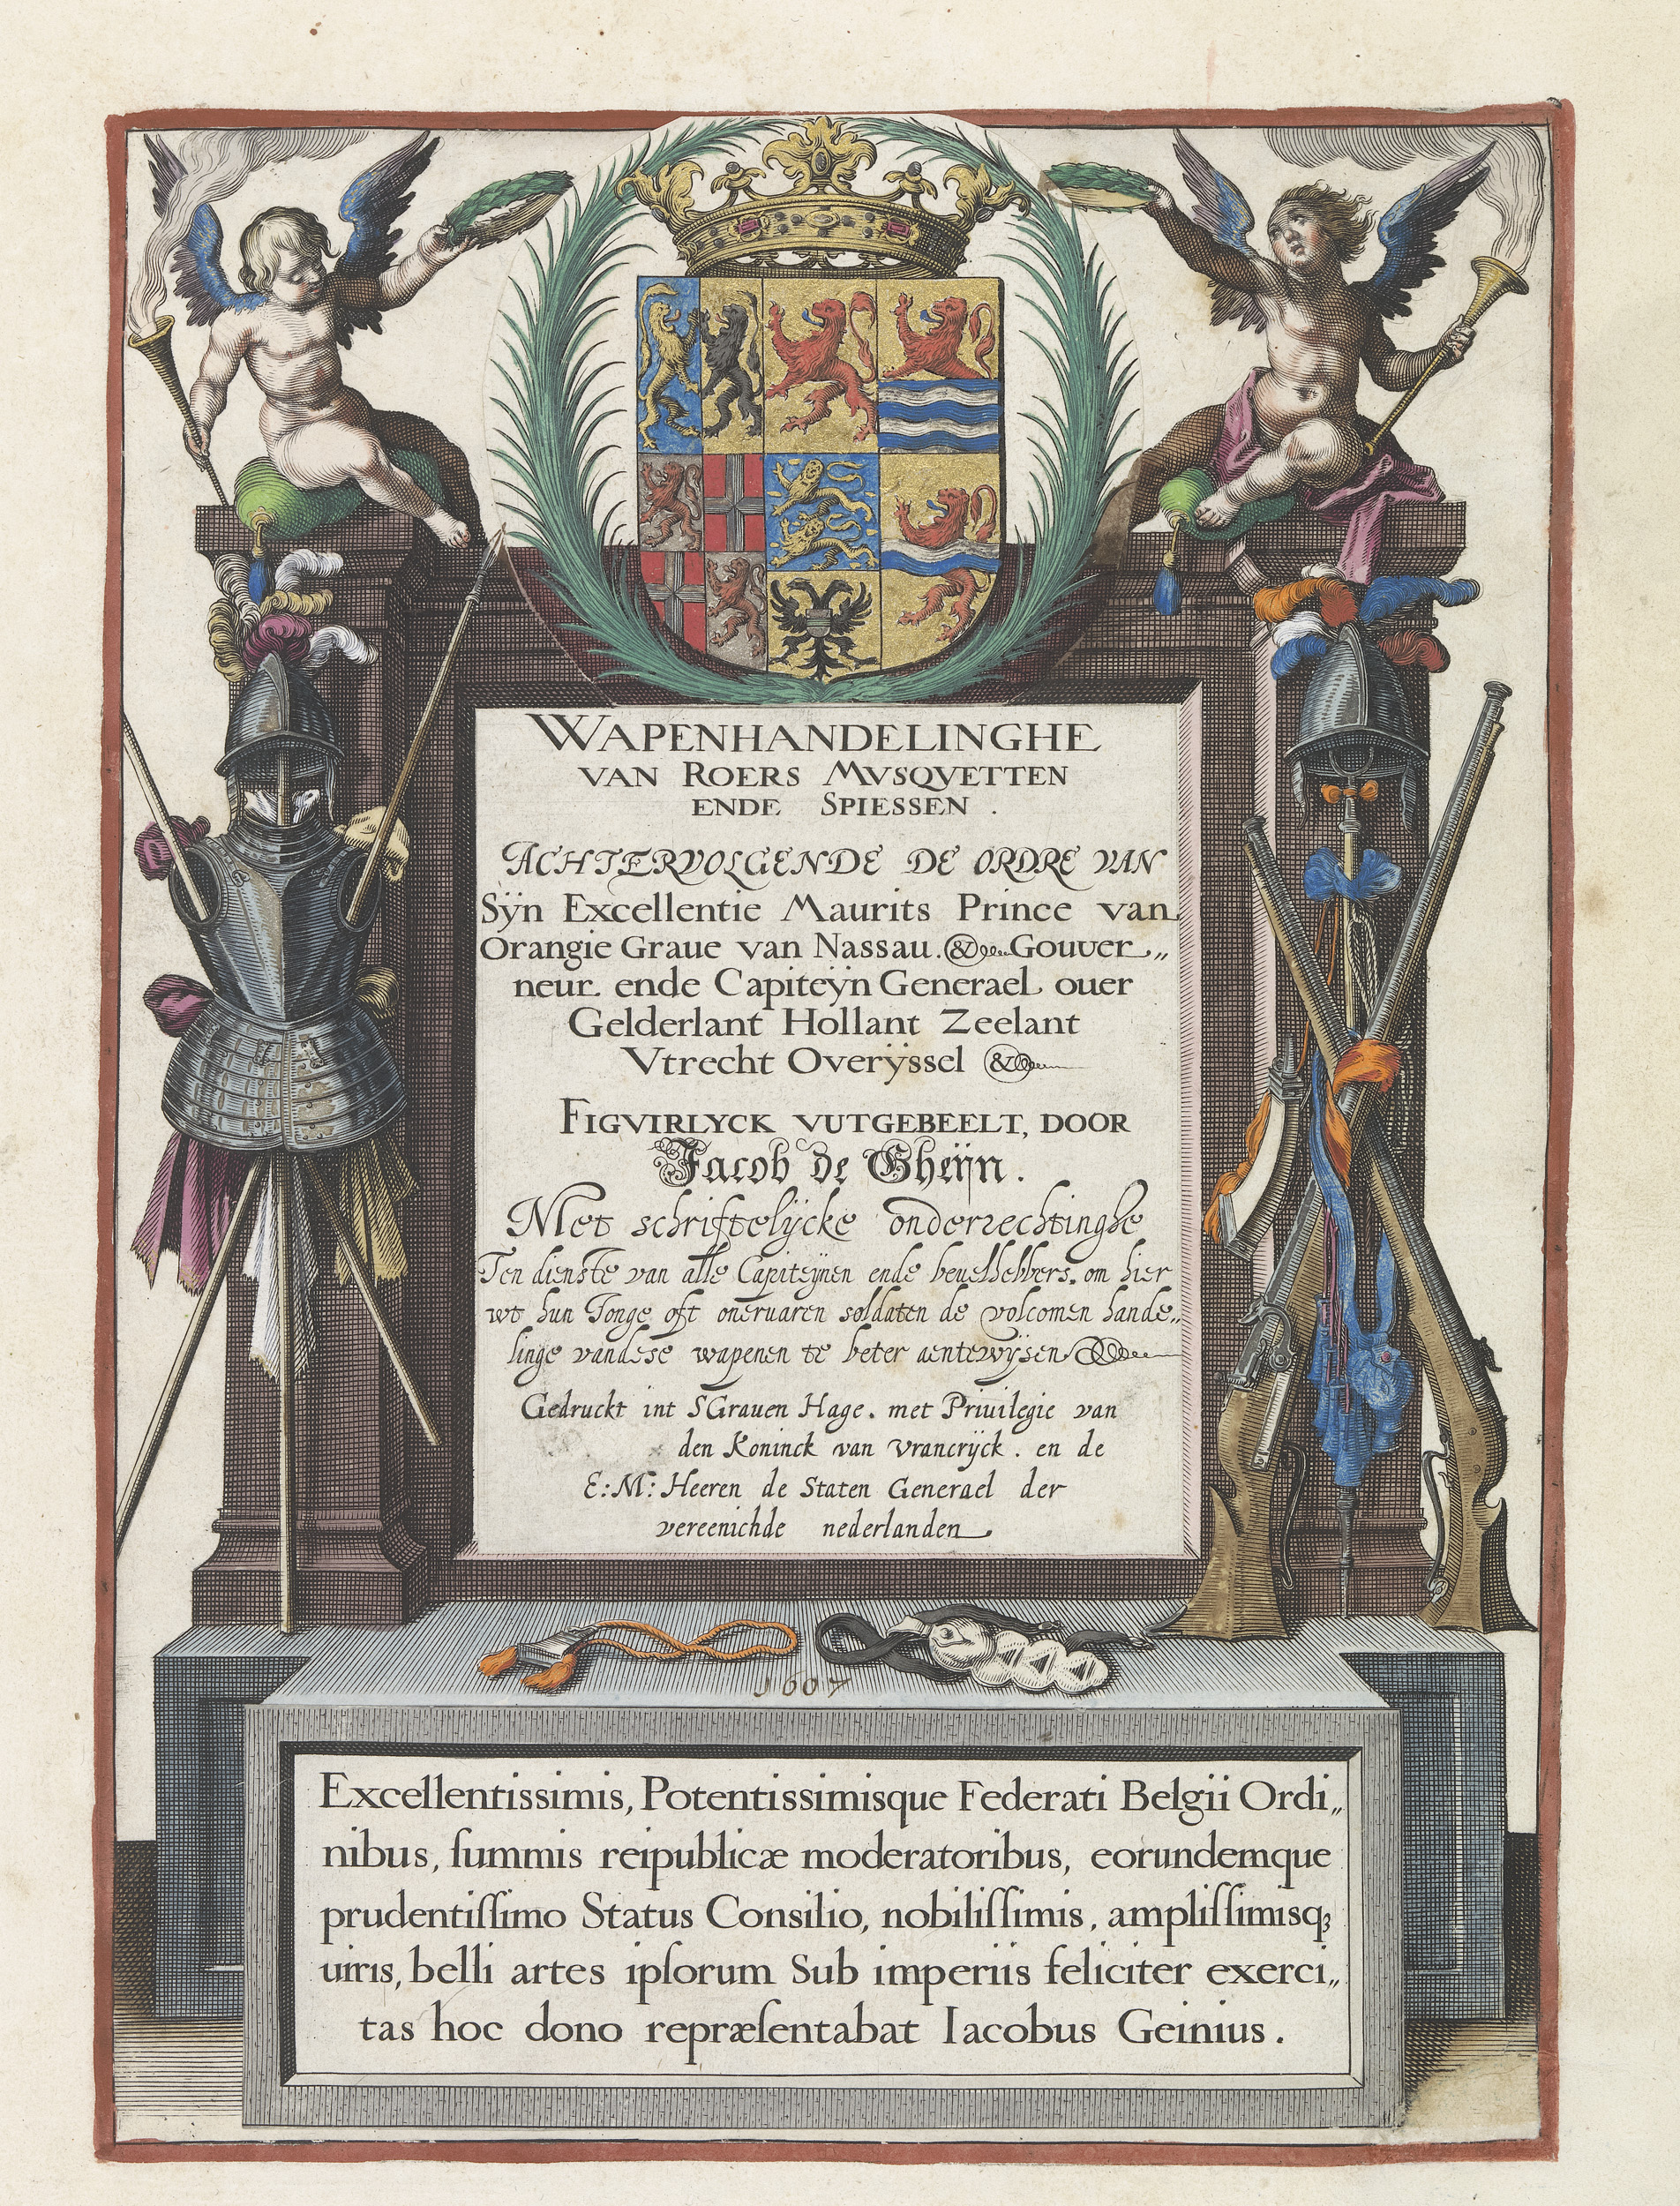 WAPENHANDELINGHE
VAN ROERS MVSQVETTEN
ENDE SPIESSEN.
ACHTERVOLGENDE DE ORDRE VAN
Sÿn Excellentie Maurits Prince van
Orangie Graue van Nassau. & Gouuer„
neur ende Capiteÿn Generael ouer
Gelderlant Hollant Zeelant
Vtrecht Overÿssel &
FIGVIRLYCK VUTGEBEELT, DOOR
Jacob de Gheÿn.
Met schriftelijcke onderrechtinghe
Ten dienste van alle Capiteÿnen ende beuelhebbers. om hier
wt hun Jonge oft oneruaren soldaten de volcomen hande„
linge vandese wapenen te beter aentewÿsen
Gedruckt int SGrauen Hage. met Priuilegie van
den Koninck van Vrancrÿck. en de
E:M: Heeren de Staten Generael der
vereenichde nederlanden
1607
Excellentissimis, Potentissimisque Federati Belgii Ordi„
nibus, ſummis reipublicæ moderatoribus, eorundemque
prudentiſſimo Status Consilio, nobiliſſimis, ampliſſimisqꝫ
uiris, belli artes ipſorum Sub imperiis feliciter exerci„
tas hoc dono repræſentabat Iacobus Geinius.